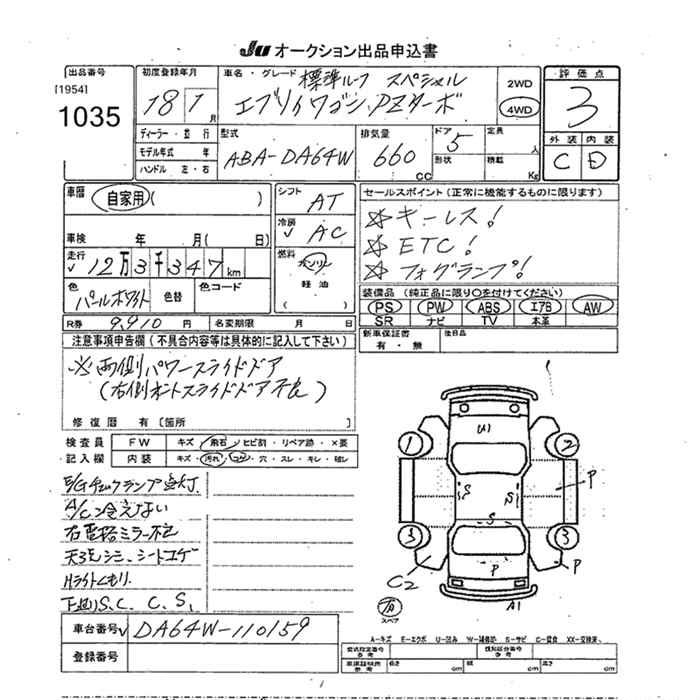 JU オークション出品申込書
出品番号
[1954]
1035
初度登録年月
18 1 月
車名・グレード
標準ルーフ スペシャル
エブリィワゴン PZターボ
2WD
4WD
評価点
3
外装 内装
C D
ディーラー・並行
モデル年式 年
ハンドル 左・右
型式
ABA-DA64W
排気量
660 CC
ドア 5
形状
定員 人
積載 Kg
車歴 自家用 ( )
車検 年 月( 日)
走行 12万3千347km
色 パールホワイト
色替
色コード
シフト AT
冷房 AC
燃料 ガソリン
軽油
R券 9,910 円
名変期限 月 日
セールスポイント(正常に機能するものに限ります)
☆キーレス!
☆ETC!
☆フォグランプ!
装備品(純正品に限り○を付けてください)
PS PW ABS エアB AW
SR ナビ TV 本革
新車保証書 有・無
後日品
注意事項申告欄(不具合内容等は具体的に記入して下さい)
※両側パワースライドドア
(右側オートスライドドア不良)
修復歴 有[箇所
検査員 FW キズ・飛石・ヒビ割・リペア跡・×要
記入欄 内装 キズ・汚れ・コゲ・穴・スレ・キレ・破レ
E/Gチェックランプ点灯
A/C冷えない
右電格ミラー不良
天張シミ、シートコゲ
Hライトくもり
下廻りS、C C、S1
車台番号 DA64W-110159
登録番号
1
2
3
3
U1
S
S
S
P
P
P
C2
A1
スペア
A-キズ E-エクボ U-凹み W-補修跡 S-サビ C-腐食 XX-交換済
参考
参考
長さ cm
幅 cm
高さ cm